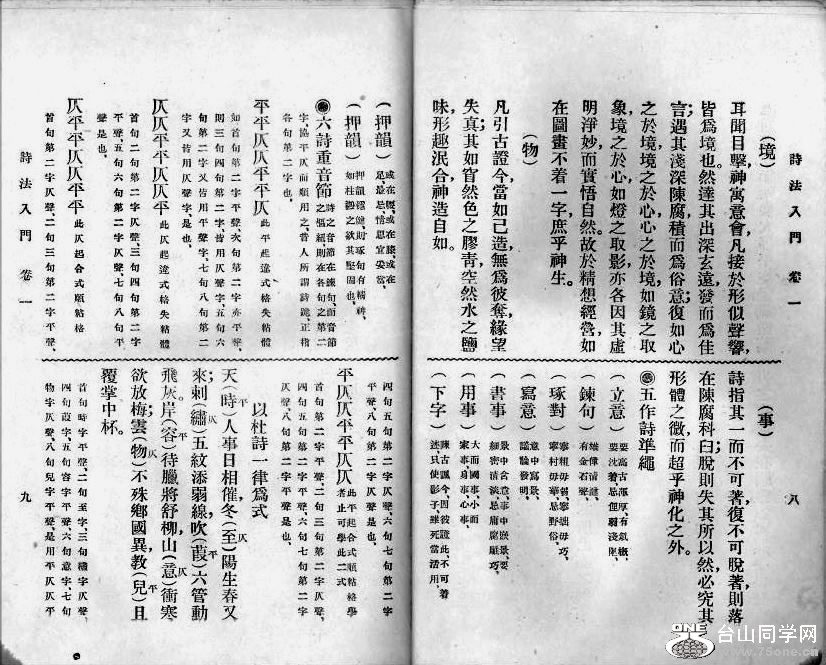 詩法入門 卷一 八
(境)
耳聞目擊,神寓意會,凡接於形似聲響,
皆爲境也。然達其出深玄遠,發而爲佳
言;遇其淺深陳腐,積而爲俗意,復如心
之於境,境之於心,心之於境,如鏡之取
象,境之於心,如燈之取影,亦各因其虛
明淨妙,而實悟自然。故於精想經營,如
在圖畫,不着一字,庶乎神生。
(物)
凡引古證今,當如已造,無爲彼奪緣望
失真,其如窅然色之膠青,空然水之鹽
味,形趣泯合,神造自如。
(事)
詩指其一,而不可著,復不可脫,著則落
在陳腐科臼,脫則失其所以然,必究其
形體之微,而超乎神化之外。
五作詩準繩
(立意) 要高古渾厚,有氣概,
要沈着,忌卑弱淺陋,
(鍊句) 雄偉清健,
有金石聲,
(琢對) 寧粗毋弱,寧拙毋巧,
寧朴毋華,忌野俗,
(寫意) 意中寫景,
議論發明,
(書事) 景中含意,事中嵌景,要
細密清淡,忌庸腐雕巧,
(用事) 大而國事,小而
家事,身事,心事,
(下字) 陳古諷今,因彼證此,不可着
迹,只使影子,雖死當活用,
(押韻) 或在腰,或在膝,或在
足,最忌情思宜妥當,
(押韻) 押韻穩健,則琢句有精神,
如柱礎之欲其堅固也,
六詩重音節 詩之音節在鍊句,而音節
之樞紐,則在各句之第二
字協平仄而順用之,昔人所謂詩訣,正指
各句第二字也。
平平仄仄平平仄 此平起違式格失粘體
如首句第二字平聲,次句第二字亦平聲,
則三句四句第二字皆用仄聲,字五句六
句第二字又皆用平聲字,七句八句第二
字又皆用仄聲字,是也,
仄仄平平仄仄平 此仄起違式格失粘體
首句二句第二字仄聲,三句四句第二字
平聲,五句六句第二字仄聲,七句八句平
聲是也,
仄平平仄仄平平仄 此仄起合式順粘格
首句第二字仄聲,二句三句第二字平聲,
四句五句第二字仄聲,六句七句第二字
平聲,八句第二字仄聲是也,
平仄仄平平仄仄 此平起合式順粘格學
者止可學此二式
首句第二字平聲,二句三句第二字仄聲,
四句五句第二字平聲,六句七句第二字
仄聲,八句第二字平聲是也,
以杜詩一律爲式
天(時)平人事日相催,冬(至)仄陽生春又
來;刺(繡)仄五紋添弱線,吹(葭)平六管動
飛灰。岸(容)平待臘將舒柳,山(意)仄衝寒
欲放梅;雲(物)仄不殊鄉國異,教(兒)平且
覆掌中杯。
首句時字平聲,二句至字,三句繡字仄聲,
四句葭字,五句容字平聲,六句意字七句
物字仄聲,八句兒字平聲,是用平仄仄平
詩法入門 卷一 九
ONE
台山同学网
www.75one.cn